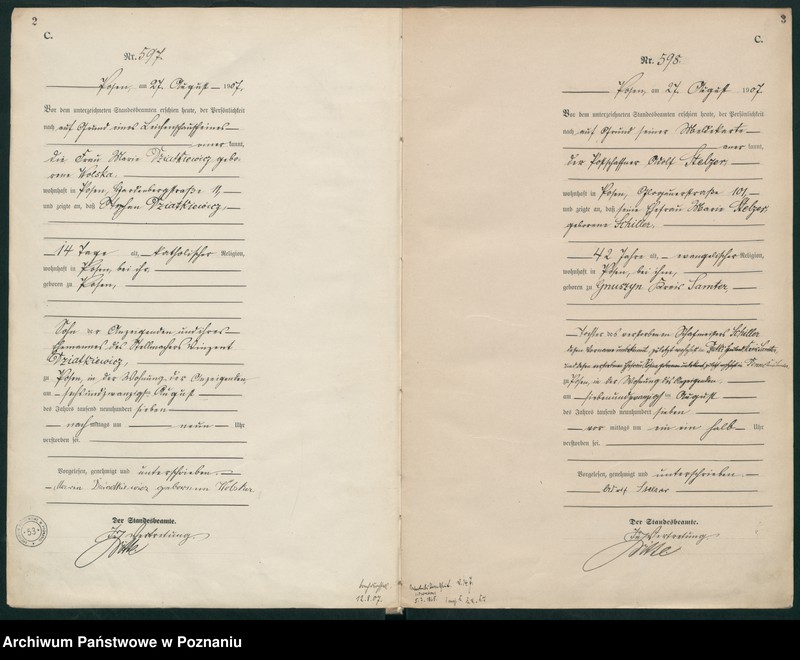 2
C.
Nr. 597.
Posen, am 27. August 1907.
Vor dem unterzeichneten Standesbeamten erschien heute, der Persönlichkeit
nach auf Grund eines Leichenschauscheines
kannt,
die Frau Marie Dziatkiewicz gebo-
rene Wolska.
wohnhaft in Posen,
und zeigte an, daß Stefan Dziatkiewicz,
14 Tage alt, katholischer Religion,
wohnhaft in Posen, bei ihr.
geboren zu Posen,
Sohn der Anzeigenden und ihres
Ehemannes des Stellmachers Vinzent
Dziatkiewicz,
zu Posen, in der Wohnung der Anzeigenden
am sechsundzwanzigsten August
des Jahres tausend neunhundert sieben
nachmittags um neun Uhr
verstorben sei.
Vorgelesen, genehmigt und unterschrieben.
geborene Wolska
Der Standesbeamte.
In Vertretung
53
3
C.
Nr. 598.
Posen, am 27. August 1907.
Vor dem unterzeichneten Standesbeamten erschien heute, der Persönlichkeit
nach auf Grund seiner Meldekarte
kannt,
der Postschaffner Adolf Stelzer,
wohnhaft in Posen, Glogauerstraße 101,
und zeigte an, daß seine Ehefrau Marie Stelzer,
geborene Schiller.
42 Jahre alt, evangelischer Religion,
wohnhaft in Posen, bei ihm,
geboren zu Gnuszyn Kreis Samter,
Tochter des verstorbenen Schafmeisters Schiller
zu Posen, in der Wohnung des Anzeigenden,
am siebenundzwanzigsten August
des Jahres tausend neunhundert sieben
vormittags um ein ein halb Uhr
verstorben sei.
Vorgelesen, genehmigt und unterschrieben
Adolf Stelzer
Der Standesbeamte.
In Vertretung
Archiwum Państwowe w Poznaniu